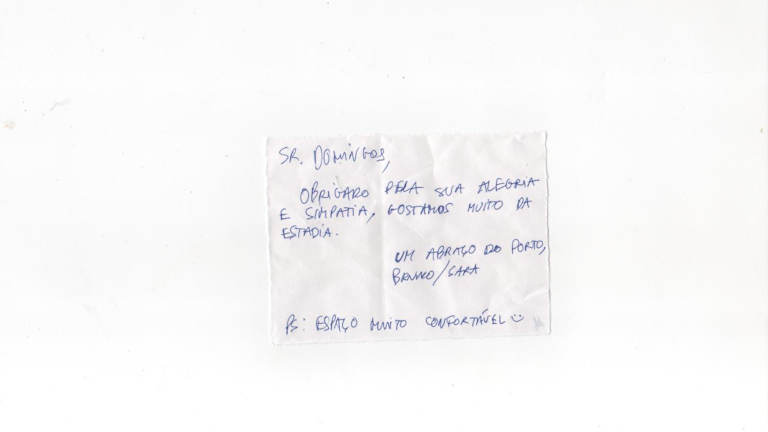 SR. DOMINGOS,
OBRIGADO PELA SUA ALEGRIA
E SIMPATIA, GOSTAMOS MUITO DA
ESTADIA.
UM ABRAÇO DO PORTO,
BRUNO/SARA
PS: ESPAÇO MUITO CONFORTÁVEL☺